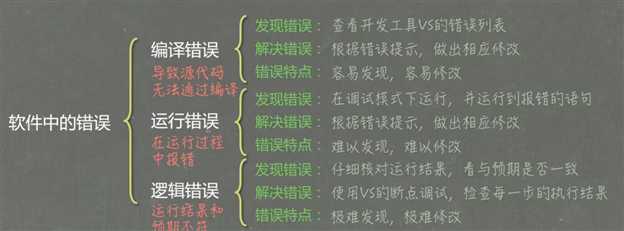 软件中的错误
编译错误
导致源代码
无法通过编译
发现错误：查看开发工具VS的错误列表
解决错误：根据错误提示，做出相应修改
错误特点：容易发现，容易修改
运行错误
在运行过程
中报错
发现错误：在调试模式下运行，并运行到报错的语句
解决错误：根据错误提示，做出相应修改
错误特点：难以发现，难以修改
逻辑错误
运行结果和
预期不符
发现错误：仔细核对运行结果，看与预期是否一致
解决错误：使用VS的断点调试，检查每一步的执行结果
错误特点：极难发现，极难修改